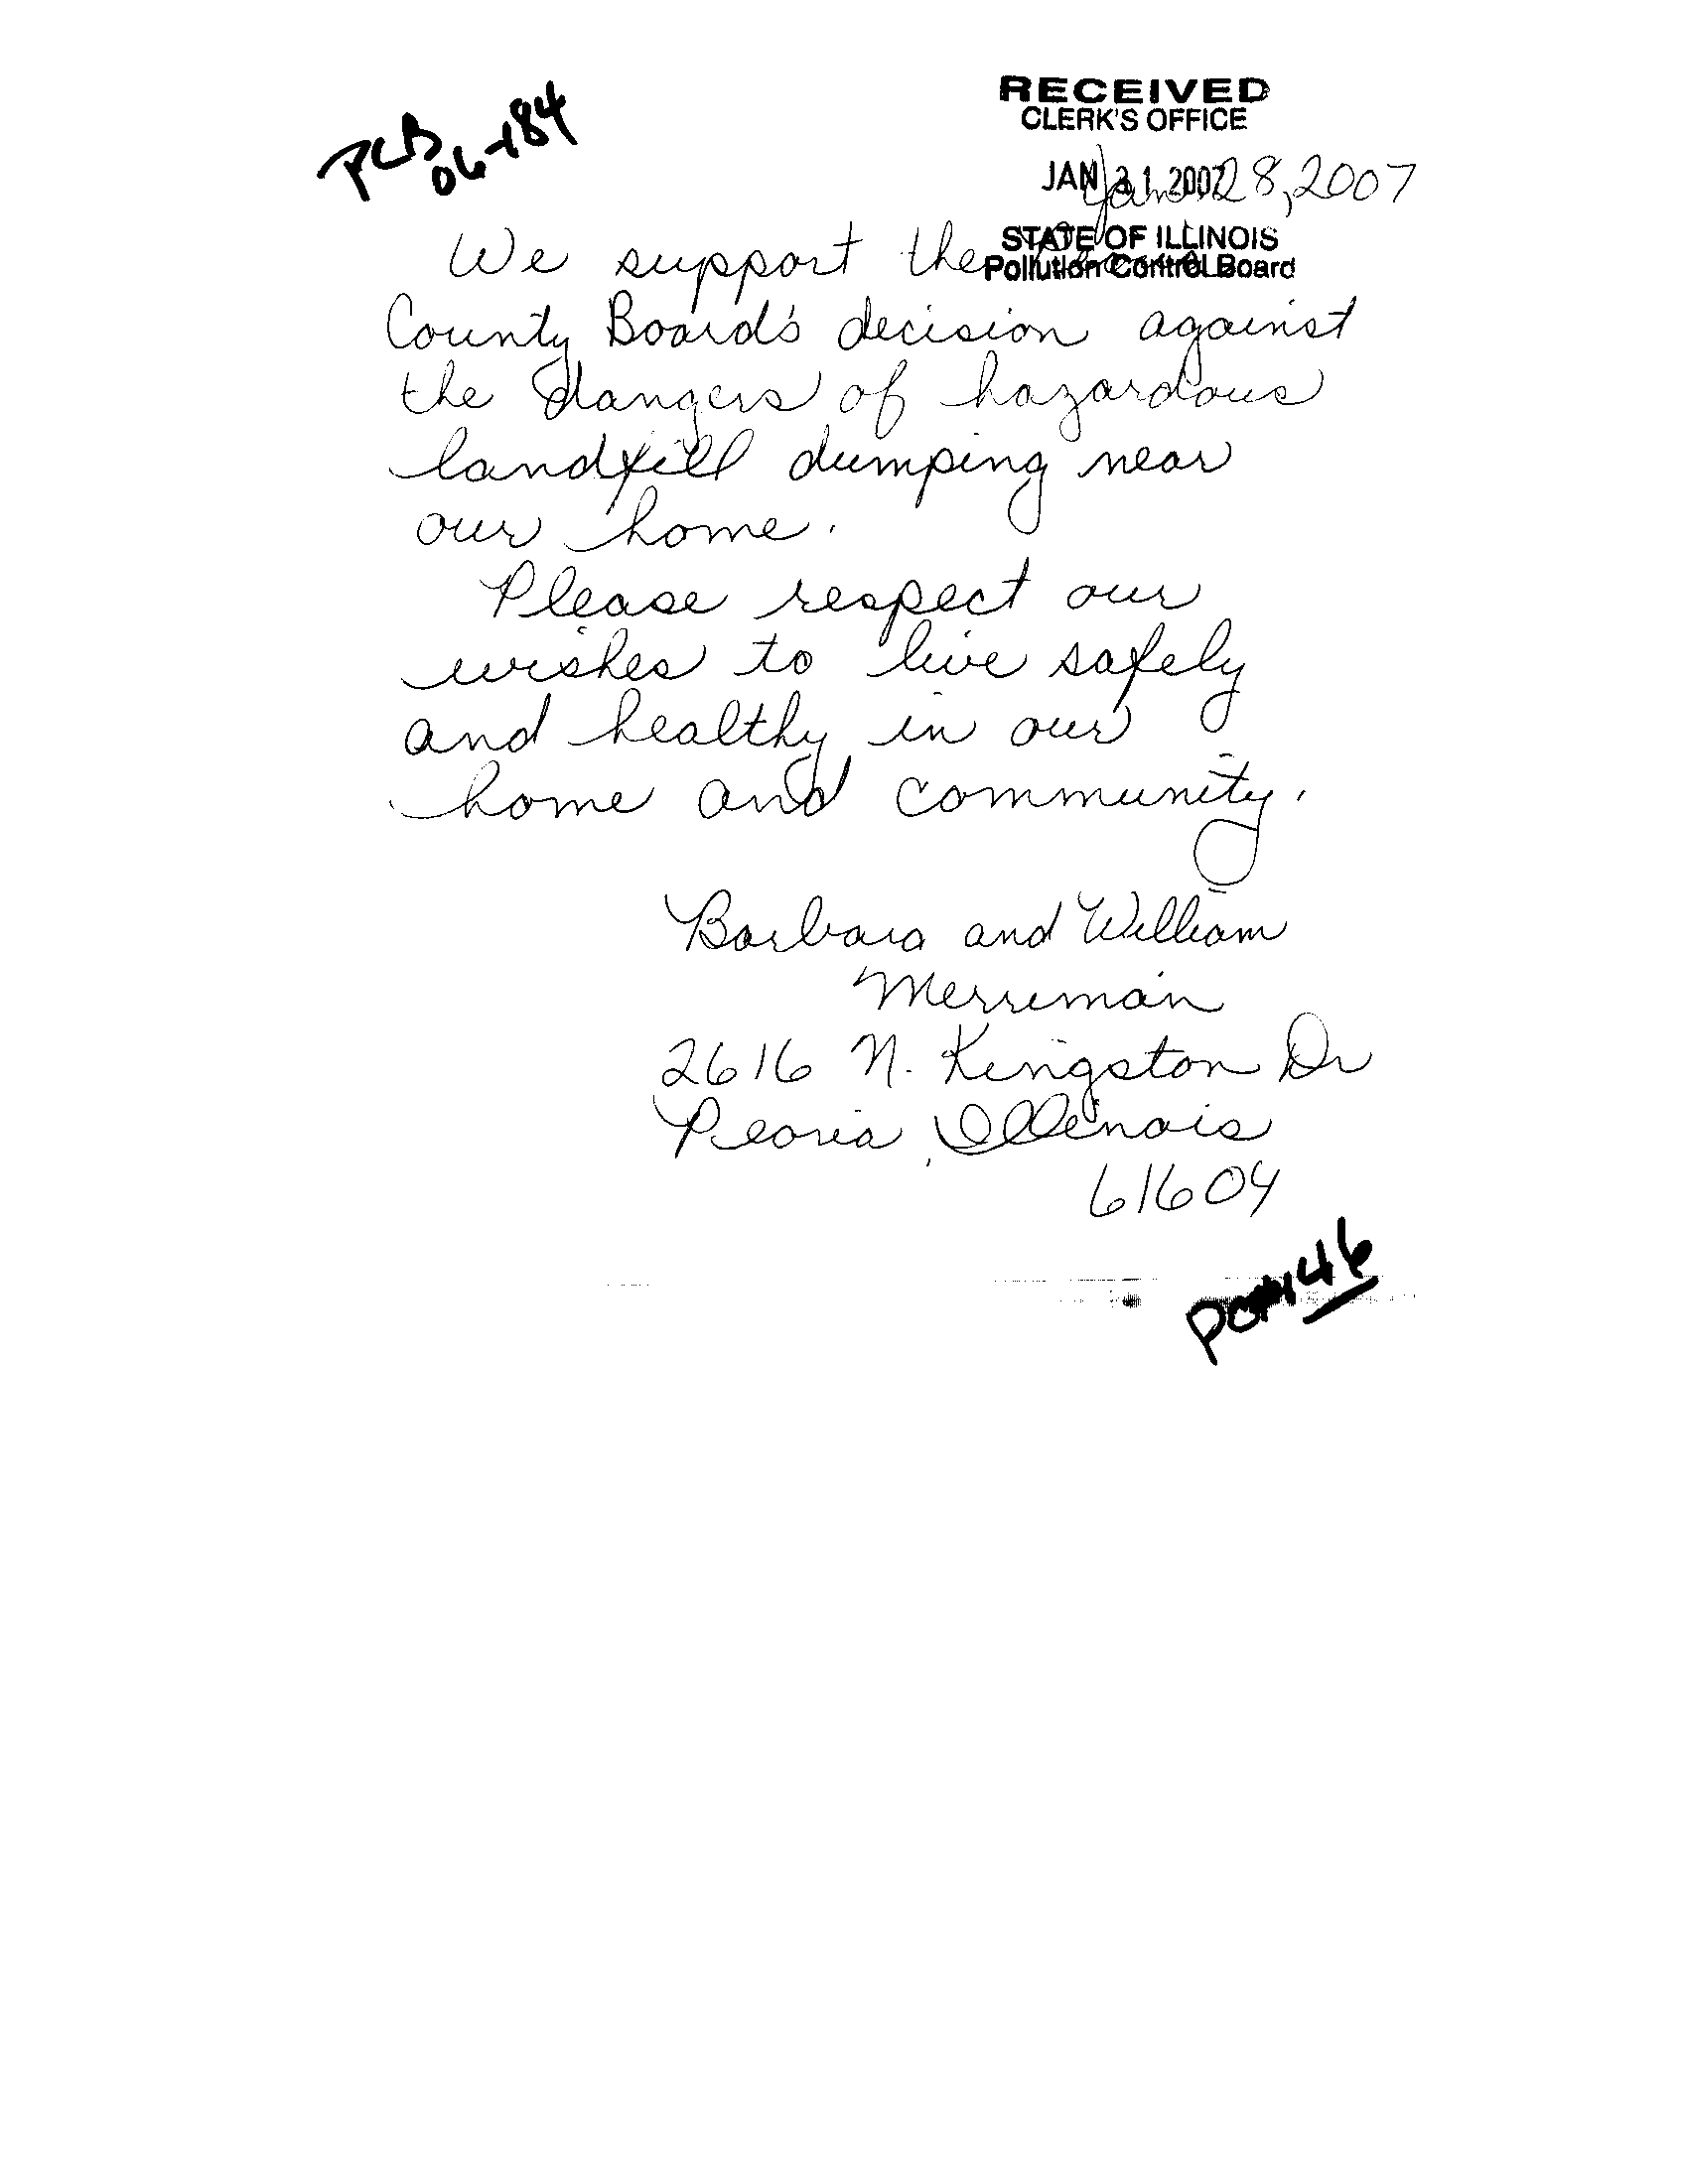 PCB 06-184
RECEIVED
CLERK'S OFFICE
JAN 31 2007
Jan. 28, 2007
STATE OF ILLINOIS
Pollution Control Board
We support the
County Board's decision against
the dangers of hazardous
landfill dumping near
our home.
Please respect our
wishes to live safely
and healthy in our
home and community.
Barbara and William
Merriman
2616 N. Kingston Dr
Peoria, Illinois
61604